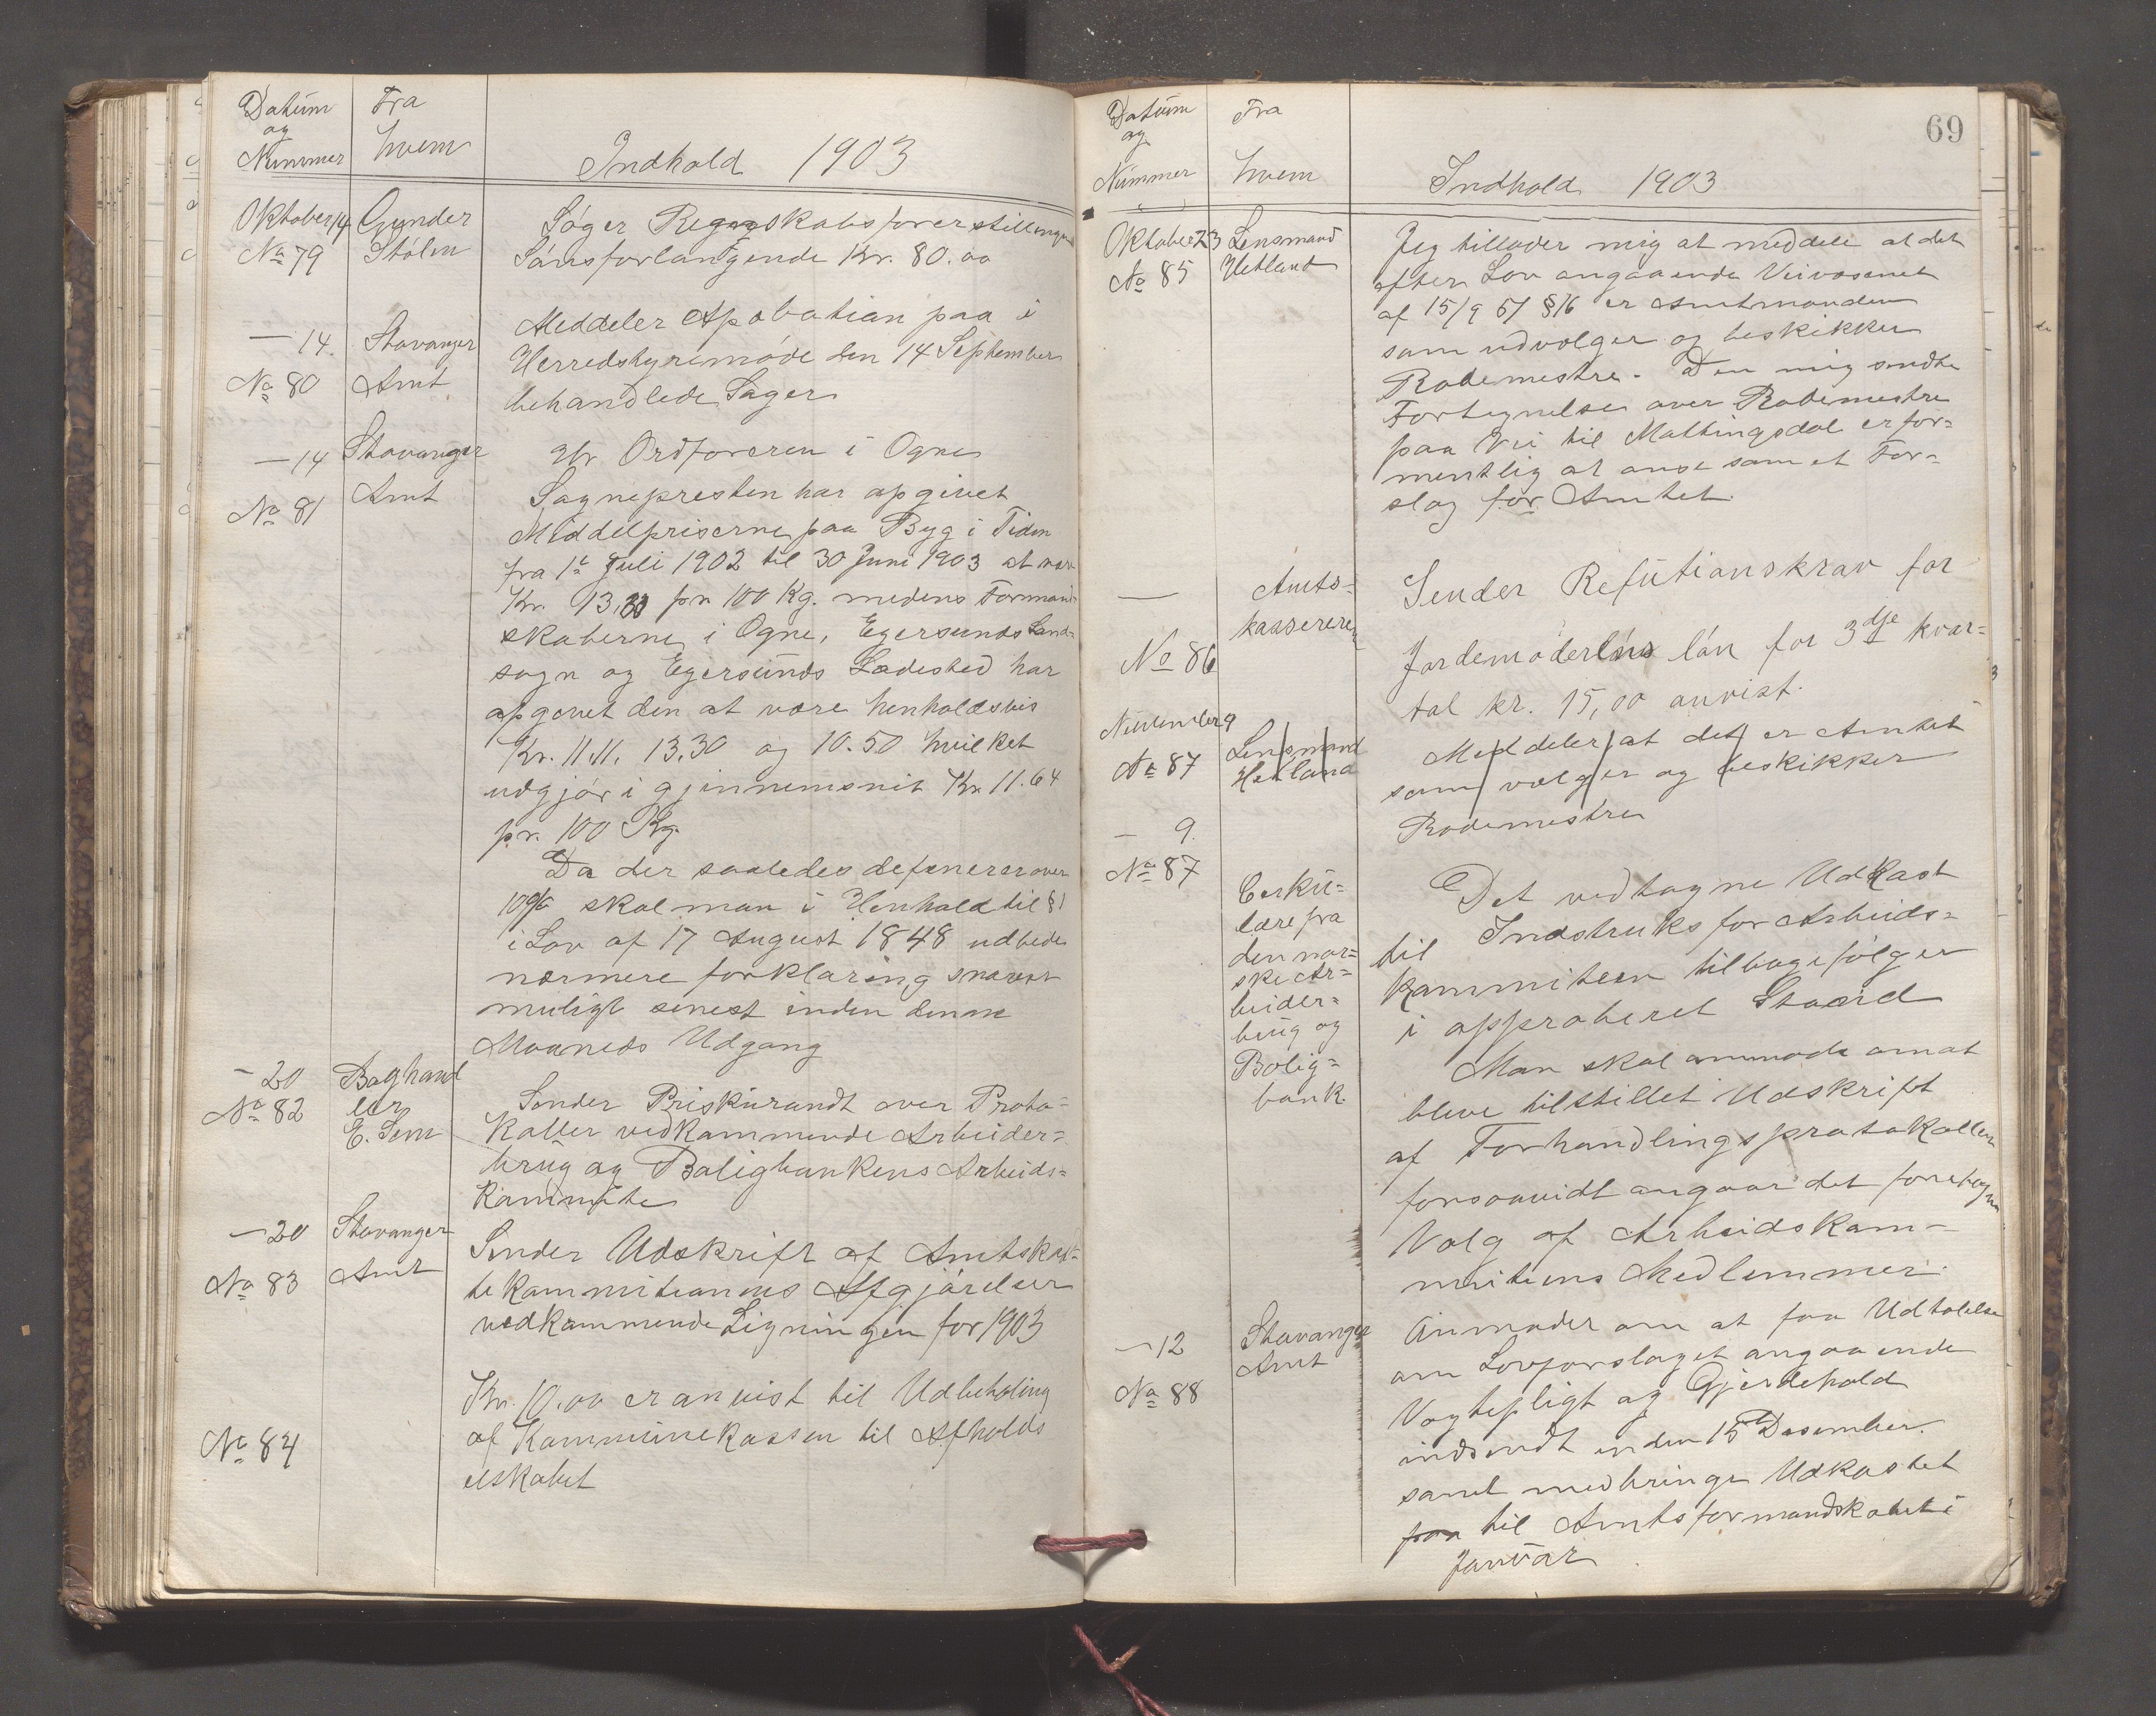 Datum
og
Nummer
Fra
hvem
Indhold 1903
Oktober 14
No 79
Gunder
Stølen
Søger Regnskabsførerstillingen
Lønsforlangende Kr. 80.00
— 14.
No 80
Stavanger
Amt
Meddeler Apobation paa i
Herredstyremøde den 14 September
behandlede Sager
— 14
No 81
Stavanger
Amt
Hr Ordføreren i Ogne
Sognepresten har opgivet
Middelpriserne paa Byg i Tiden
fra 1ste Juli 1902 til 30 Juni 1903 at være
Kr. 13,30 pr 100 Kg. medens Formand-
skaberne i Ogne, Egersunds Land-
sogn og Egersunds Ladested har
opgivet den at være henholdsvis
Kr. 11.11. 13.30 og 10.50 hvilket
udgjør i gjinnemsnit Kr. 11.64
pr. 100 Kg.
Da der saaledes defenerer over
10% skal man i Henhold til §1
i Lov af 17 August 1848 udbede
nærmere forklaring snarest
muligt senest inden denne
Maaneds Udgang
— 20
No 82
Boghand
ler
E. Sem
Sender Priskurandt over Proto-
Koller vedkommende Arbeider-
brug og Boligbankens Arbeids-
Kommite
— 20
No 83
Stavanger
Amt
Sender Udskrift af Amtskas-
tekommiteanens Afgjørelser
vedkommende Ligningen for 1903
No 84
Kr. 10.00 er anvist til Udbetaling
af Kommunekassen til Afholds
elskabet
69
Datum
og
Nummer
Fra
hvem
Indhold 1903
Oktober 23
No 85
Lensmand
Hetland
Jeg tillader mig at meddele at det
efter Lov angaaende Veivæsenet
af 15/9 51 §16 er Amtmanden
som udvælger og beskikker
Rodemestre. Den mig sendte
Fortegnelse over Rodemestre
paa Vei til Mattingsdal er for-
mentlig at anse som et For-
slag for Amtet.
—
No 86
Amts-
kasserern
Sender Refutionskrav for
Jordemoderens løn for 3dje kvar-
tal kr. 15,00 anvist.
November 9
No 87
Lensmand
Hetland
Meddeler at det er Amtet
som vælger og beskikker
Rodemestre
— 9.
No 87
Cerku-
lære fra
den nor-
ske Ar-
beider-
brug og
Bolig-
bank.
Det vedtagne Udkast
til Instruks for Arbeids-
kommiteen tilbagefølger
i approberet Stand
Man skal anmode om at
blive tilstillet Udskrift
af Forhandlingsprotokollen
forsaavidt angaar det foretagne
Valg af Arbeidskom-
miteens Medlemmer.
— 12
No 88
Stavanger
Amt
Anmoder om at faa Udtalelse
om Lovforslaget angaaende
Vogtepligt og Gjerdehold
indsendt inden 15 Desember.
samt medbringe Udkastet
paa til Amtsformandskabet i
Januar